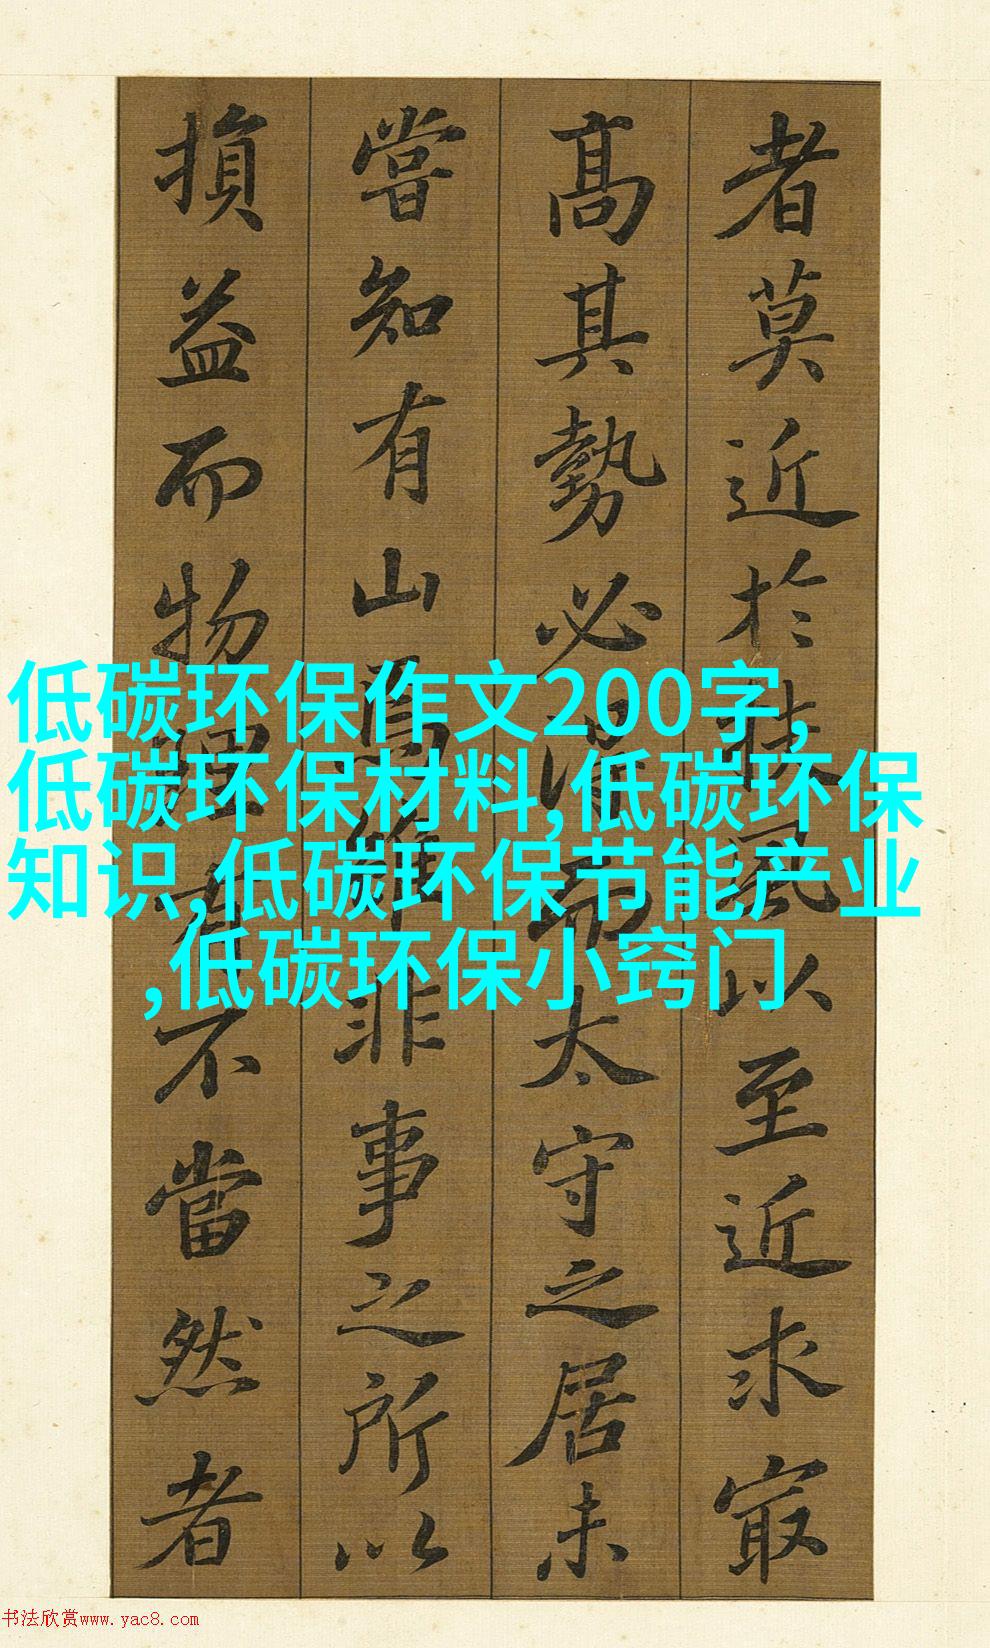 者莫近於扶風以至近求冣
髙其勢必得而太守之居未
嘗知有山焉雖非事之所以
損益而物理有不當然者
低碳环保作文200字,
低碳环保材料,低碳环保
知识,低碳环保节能产业
,低碳环保小窍门
书法欣赏www.yac8.com